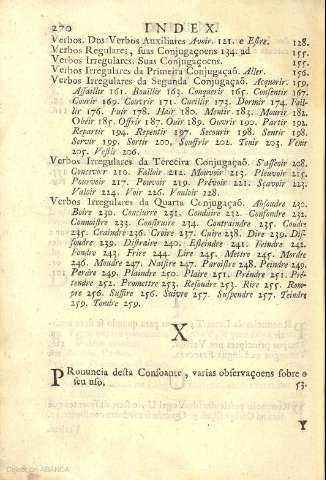 270 INDEX.
Verbos. Dos Verbos Auxiliares Avoir. 121. e Estre. 128.
Verbos Regulares, suas Conjugaçoens 134. ad 155.
Verbos Irregulares. Suas Conjugaçoens. 155.
Verbos Irregulares da Primeira Conjugaçaõ. Aller. 156.
Verbos Irregulares da Segunda Conjugaçaõ. Acquerir. 159.
Assaillir 161. Bouillir 163. Conquerir 165. Consentir 167.
Courir 169. Couvrir 171. Cueillir 173. Dormir 174. Fail-
lir 176. Fuir 178. Haïr. 180. Mentir 183. Mourir 182.
Obéir 185. Offrir 187. Ouïr 189. Ouvrir 190. Partir 192.
Repartir 194. Repentir 197. Secourir 198. Sentir 198.
Servir 199. Sortir 200. Souffrir 202. Tenir 203. Venir
205. Vestir 206.
Verbos Irregulares da Terceira Conjugaçaõ. S'asseoir 208.
Concevoir 210. Falloir 212. Mouvoir 213. Pleuvoir 215.
Pourvoir 217. Pouvoir 219. Prévoir 221. Sçavoir 223.
Valoir 224. Voir 226. Vouloir 228.
Verbos Irregulares da Quarta Conjugaçaõ. Absoudre 230.
Boire 230. Conclurre 231. Conduire 232. Confondre 232.
Connoistre 233. Construire 234. Contraindre 235. Coudre
235. Craindre 236. Croire 237. Cuire 238. Dire 239. Dis-
soudre 239. Distraire 240. Esteindre 241. Feindre 242.
Fondre 243. Frire 244. Lire 245. Mettre 245. Mordre
246. Moudre 247. Naistre 247. Paroistre 248. Peindre 249.
Perdre 249. Plaindre 250. Plaire 251. Préndre 251. Pré-
tendre 252. Promettre 253. Resoudre 253. Rire 255. Rom-
pre 256. Suffire 256. Suivre 257. Suspendre 257. Teindre
259. Tondre 259.
X
PRonuncia desta Consoante, varias observaçoens sobre o
seu uso. 53.
Y